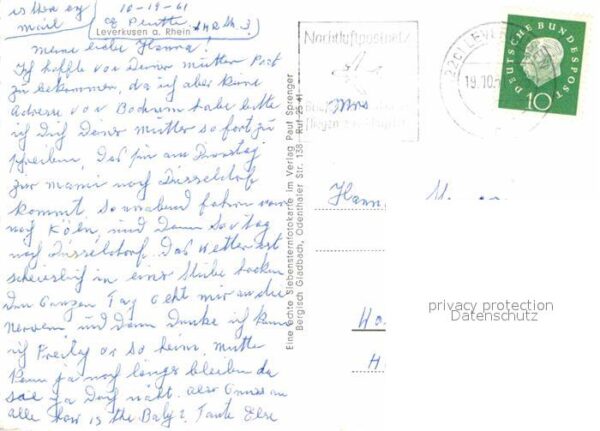 is there any
mail
10-19-61
Leverkusen a. Rhein
meine liebe Hanna!
Ich hoffte von Deiner mutter Post
zu bekommen, da ich aber keine
Adresse von Bochum habe bitte
ich Dich Deine mutter sofort zu
schreiben, das sie am Dienstag
zur mami nach Düsseldorf
kommt. Sonnabend fahren wir
nach Köln, und dann Sontag
nach Düsseldorf. Das wetter ist
scheuslich in eine Stube hocken
den Ganzen Tag geht mir an die
nerven und dann denke ich kann
ich Freitag or so heim, mutter
kann ja noch länger bleiben da
sie ja doch nicht. also Gruss an
alle how is the Baby? Tante Else
Eine echte Siebensternfotokarte im Verlag Paul Sprenger
Bergisch Gladbach, Odenthaler Str. 138 - Ruf 25 41
Nachtluftpostnetz
19.10.
DEUTSCHE BUNDESPOST
10
Mrs
privacy protection
Datenschutz